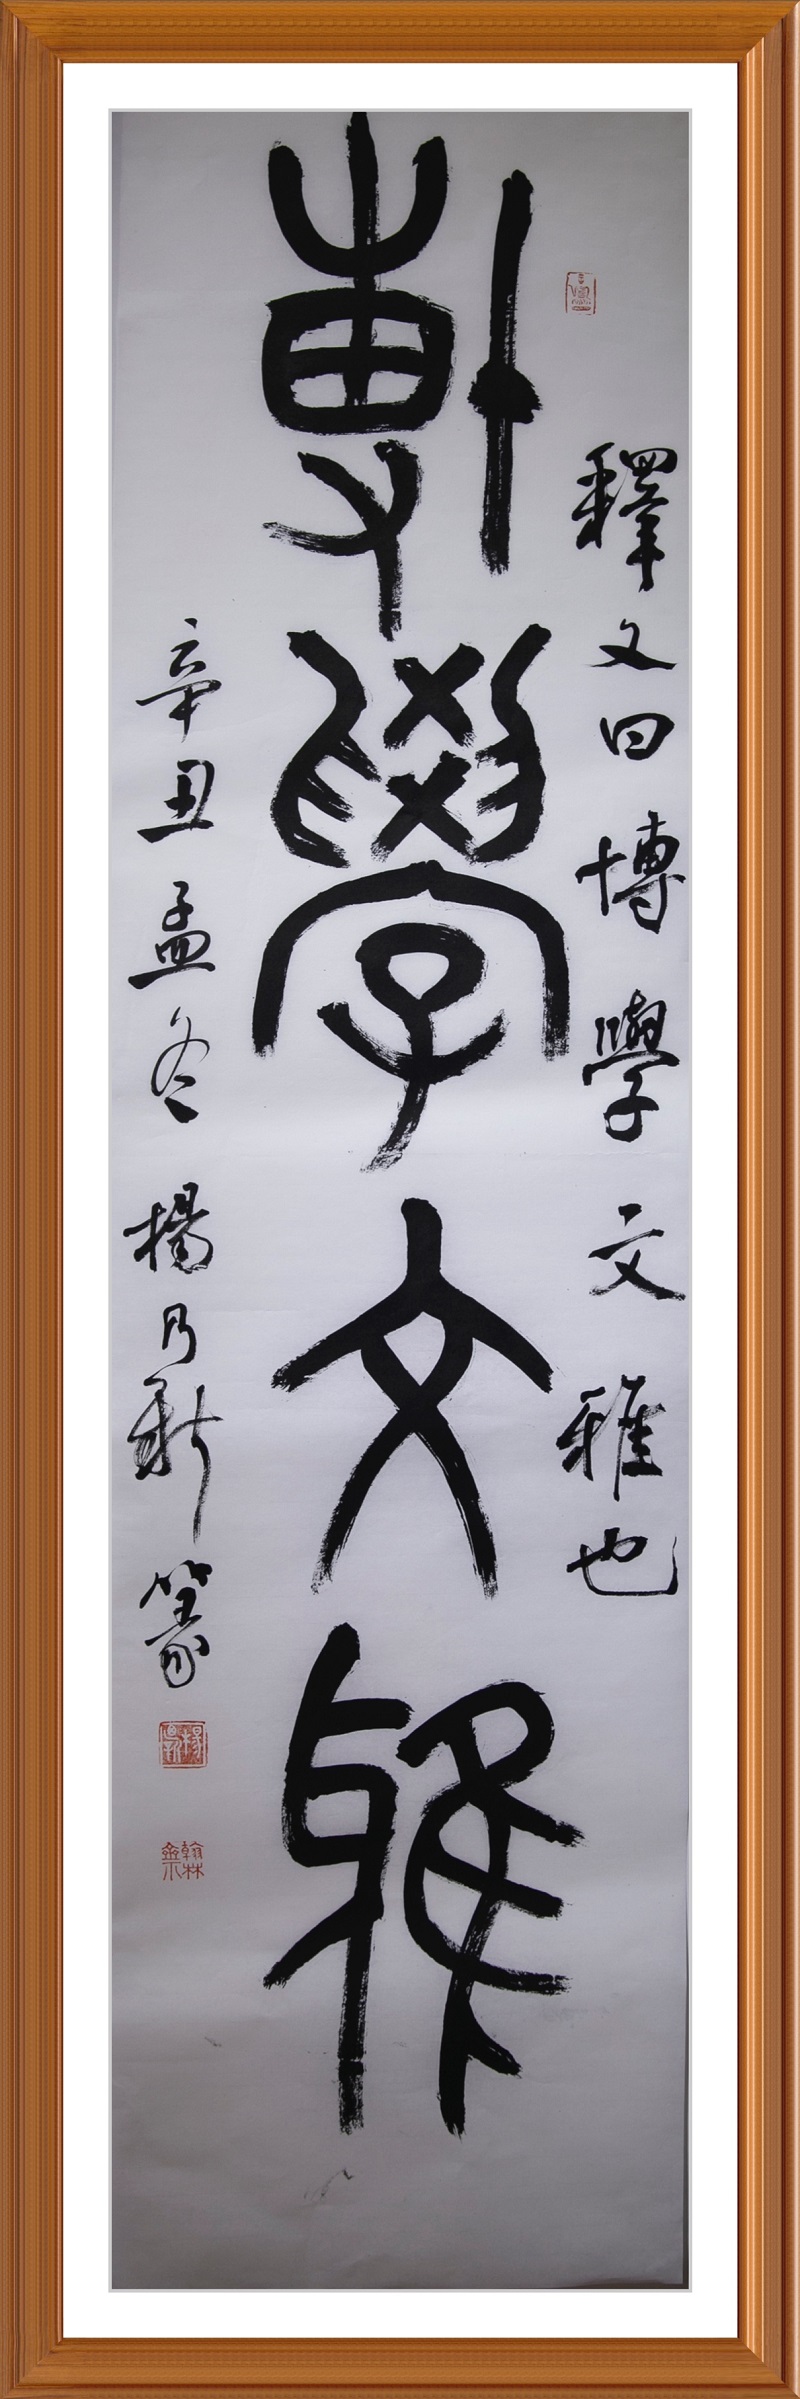 釋文曰博學文雅也
博學文雅
辛丑孟冬楊乃新篆